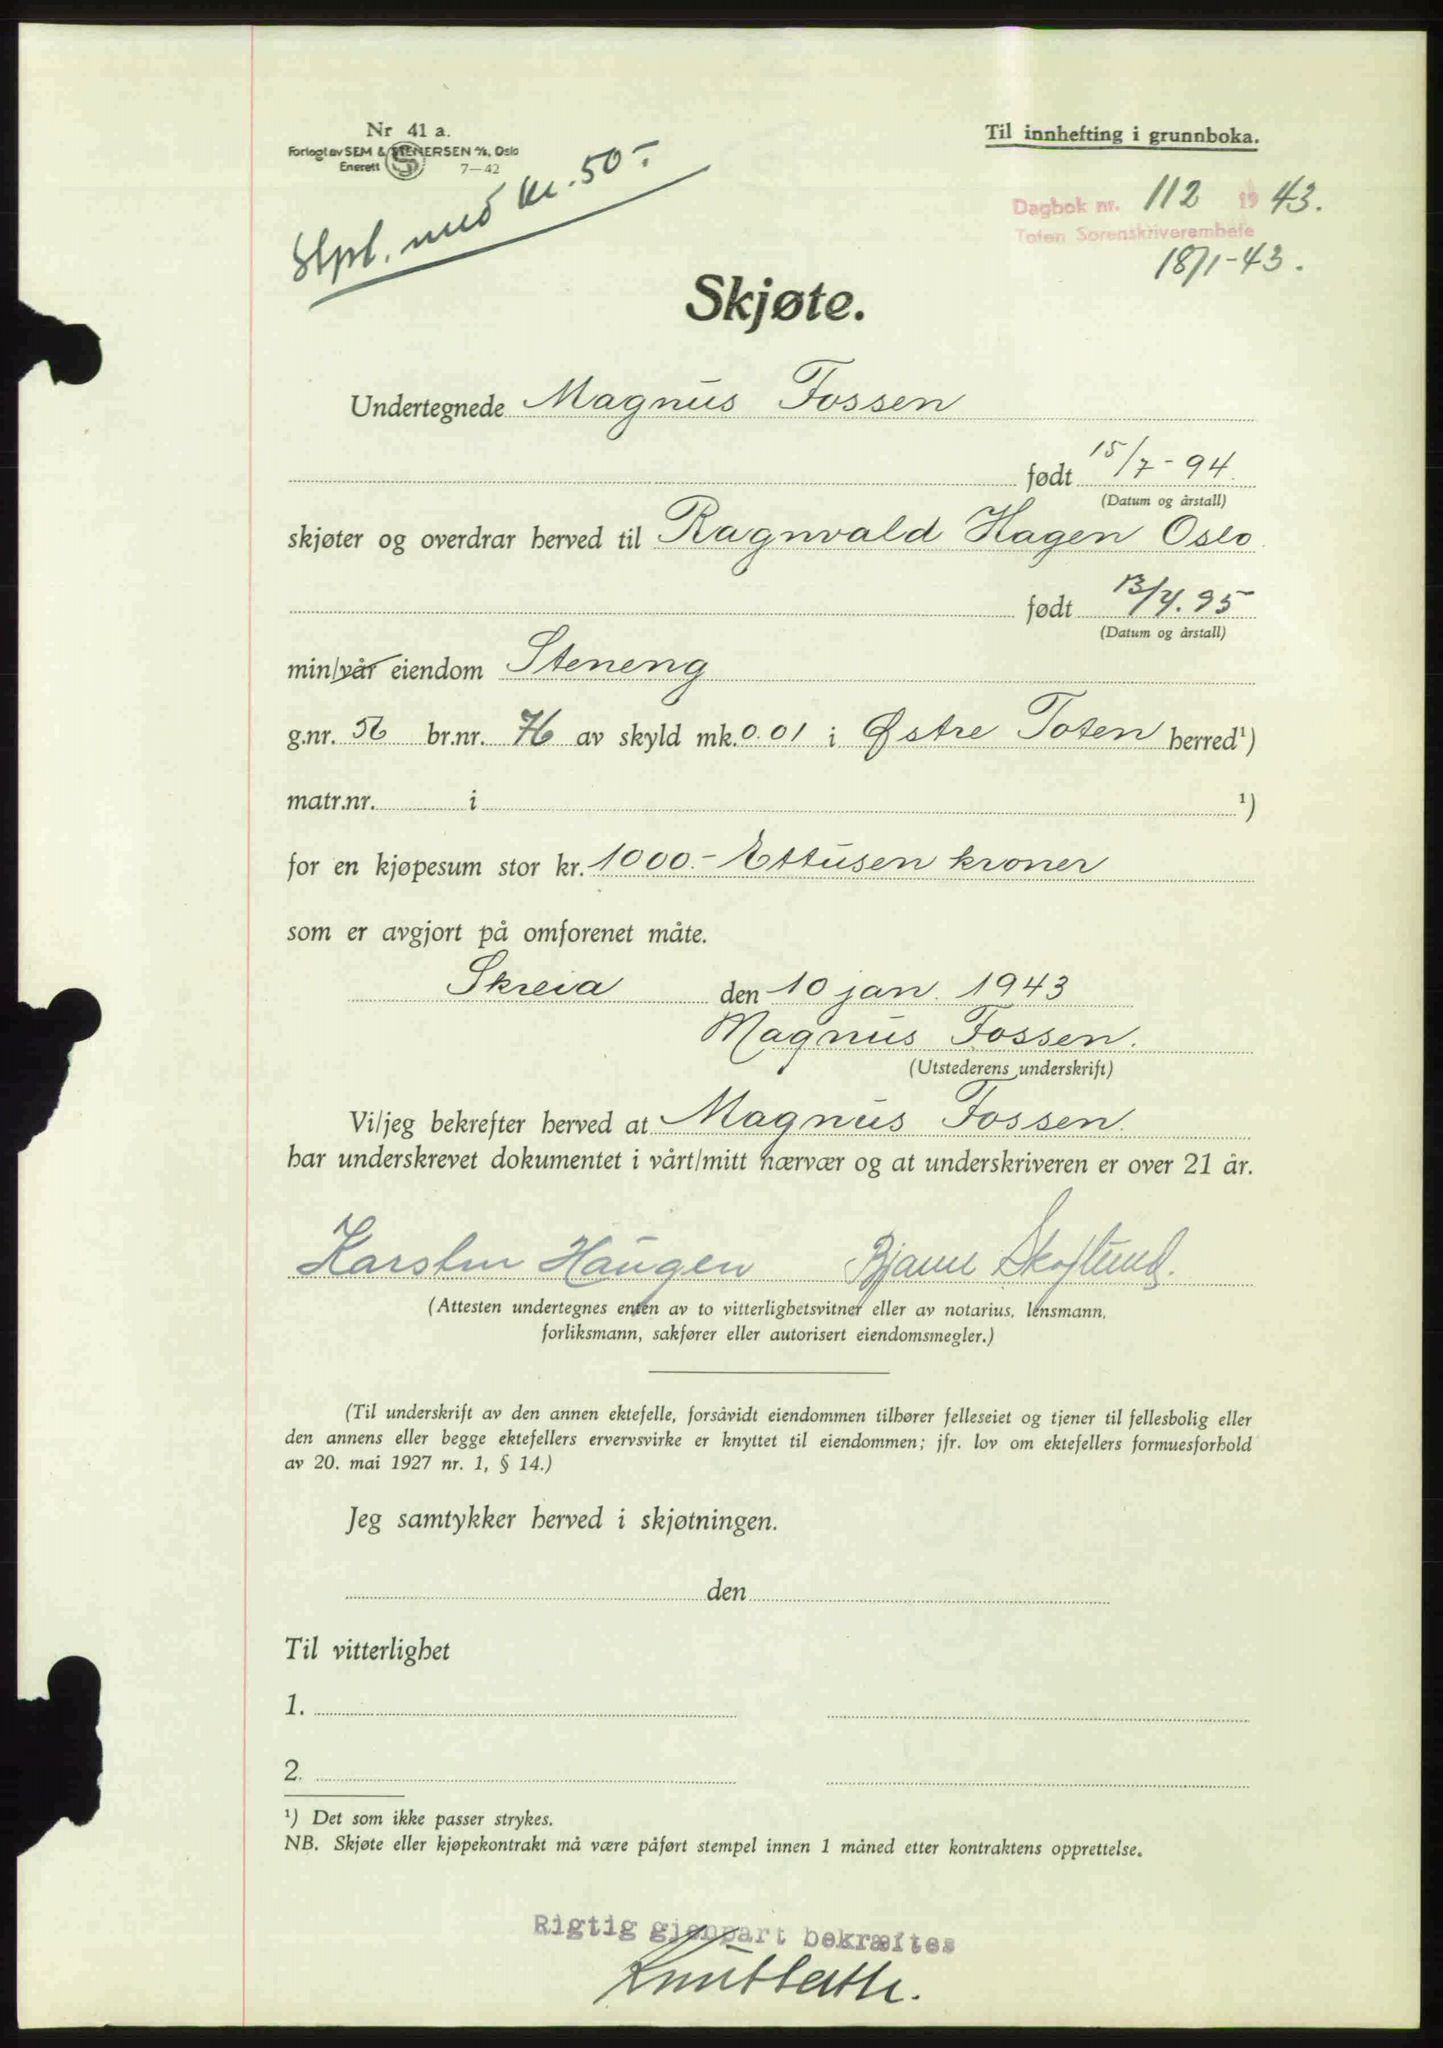 Nr 41 a.
Forlagt av SEM & STENERSEN A/S, Oslo
Enerett 7—42
Til innhefting i grunnboka.
Stpl. med kr. 50.-
Dagbok nr. 112 1943.
Toten Sorenskriverembete
18/1-43.
Skjøte.
Undertegnede Magnus Fossen
født 15/7-94.
(Datum og årstall)
skjøter og overdrar herved til Ragnvald Hagen Oslo
født 13/4.95
(Datum og årstall)
min/vår eiendom Steneng
g.nr. 56 br.nr. 76 av skyld mk. 0.01 i Østre Toten herred¹)
matr.nr. i ¹)
for en kjøpesum stor kr. 1000.- Ettusen kroner
som er avgjort på omforenet måte.
Skreia den 10 jan. 1943
Magnus Fossen.
(Utstederens underskrift)
Vi/jeg bekrefter herved at Magnus Fossen.
har underskrevet dokumentet i vårt/mitt nærvær og at underskriveren er over 21 år.
Karsten Haugen Bjarne
(Attesten undertegnes enten av to vitterlighetsvitner eller av notarius, lensmann,
forliksmann, sakfører eller autorisert eiendomsmegler.)
(Til underskrift av den annen ektefelle, forsåvidt eiendommen tilhører felleseiet og tjener til fellesbolig eller
den annens eller begge ektefellers ervervsvirke er knyttet til eiendommen; jfr. lov om ektefellers formuesforhold
av 20. mai 1927 nr. 1, § 14.)
Jeg samtykker herved i skjøtningen.
den
Til vitterlighet
1.
2.
¹) Det som ikke passer strykes.
NB. Skjøte eller kjøpekontrakt må være påført stempel innen 1 måned etter kontraktens opprettelse.
Rigtig gjenpart bekræftes